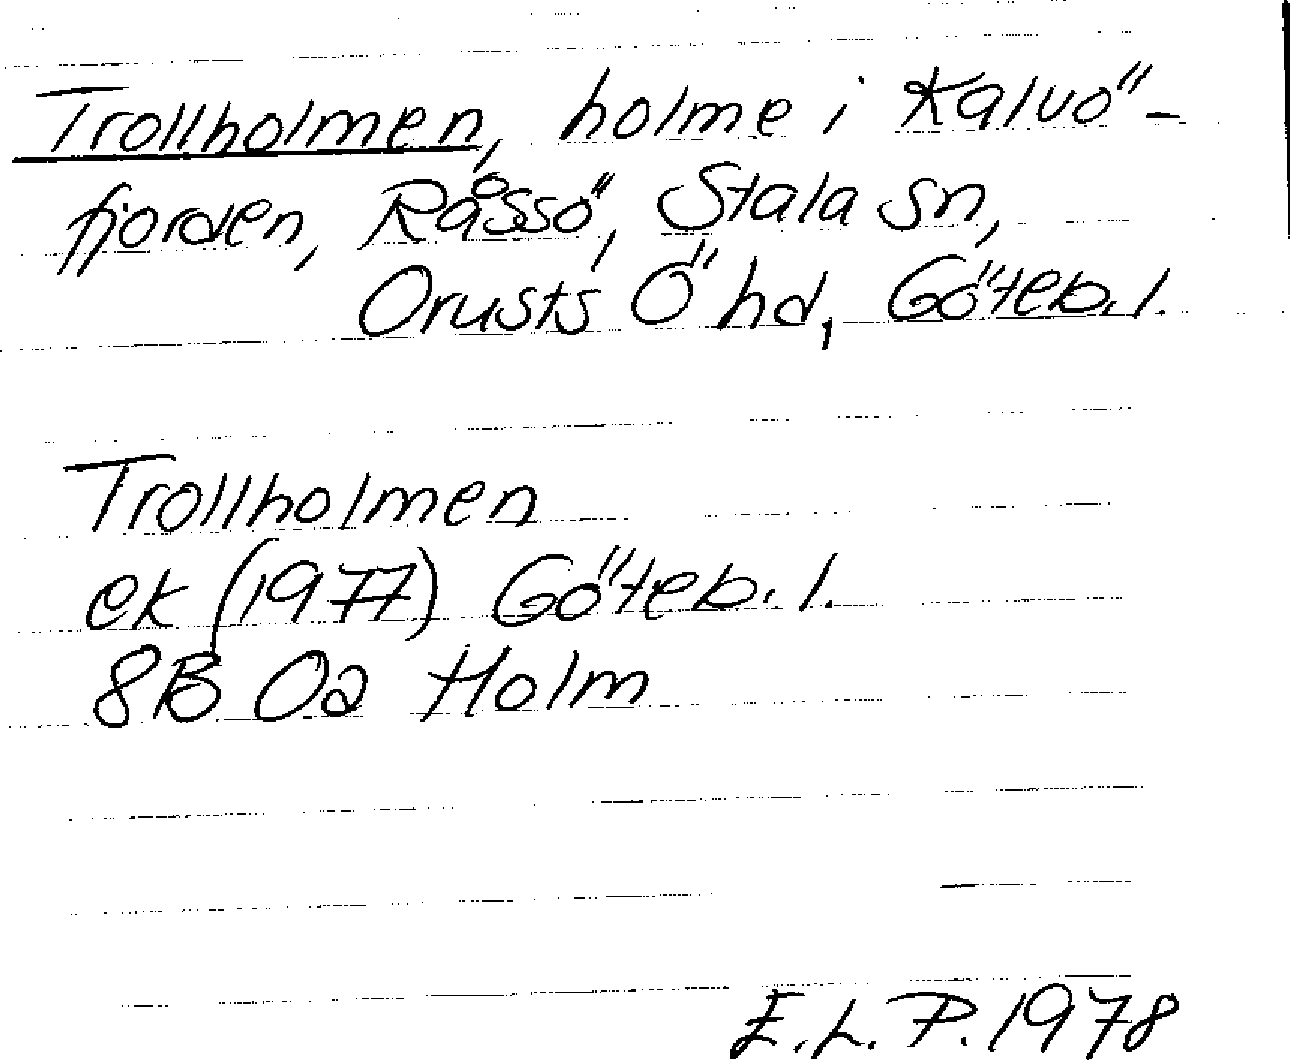 Trollholmen, holme i Kalvö-
fjorden, Råssö, Stala sn,
Orusts Ö hd, Göteb. l.
Trollholmen
ek (1977) Göteb. l.
8B 0a Holm
E.L.P. 1978